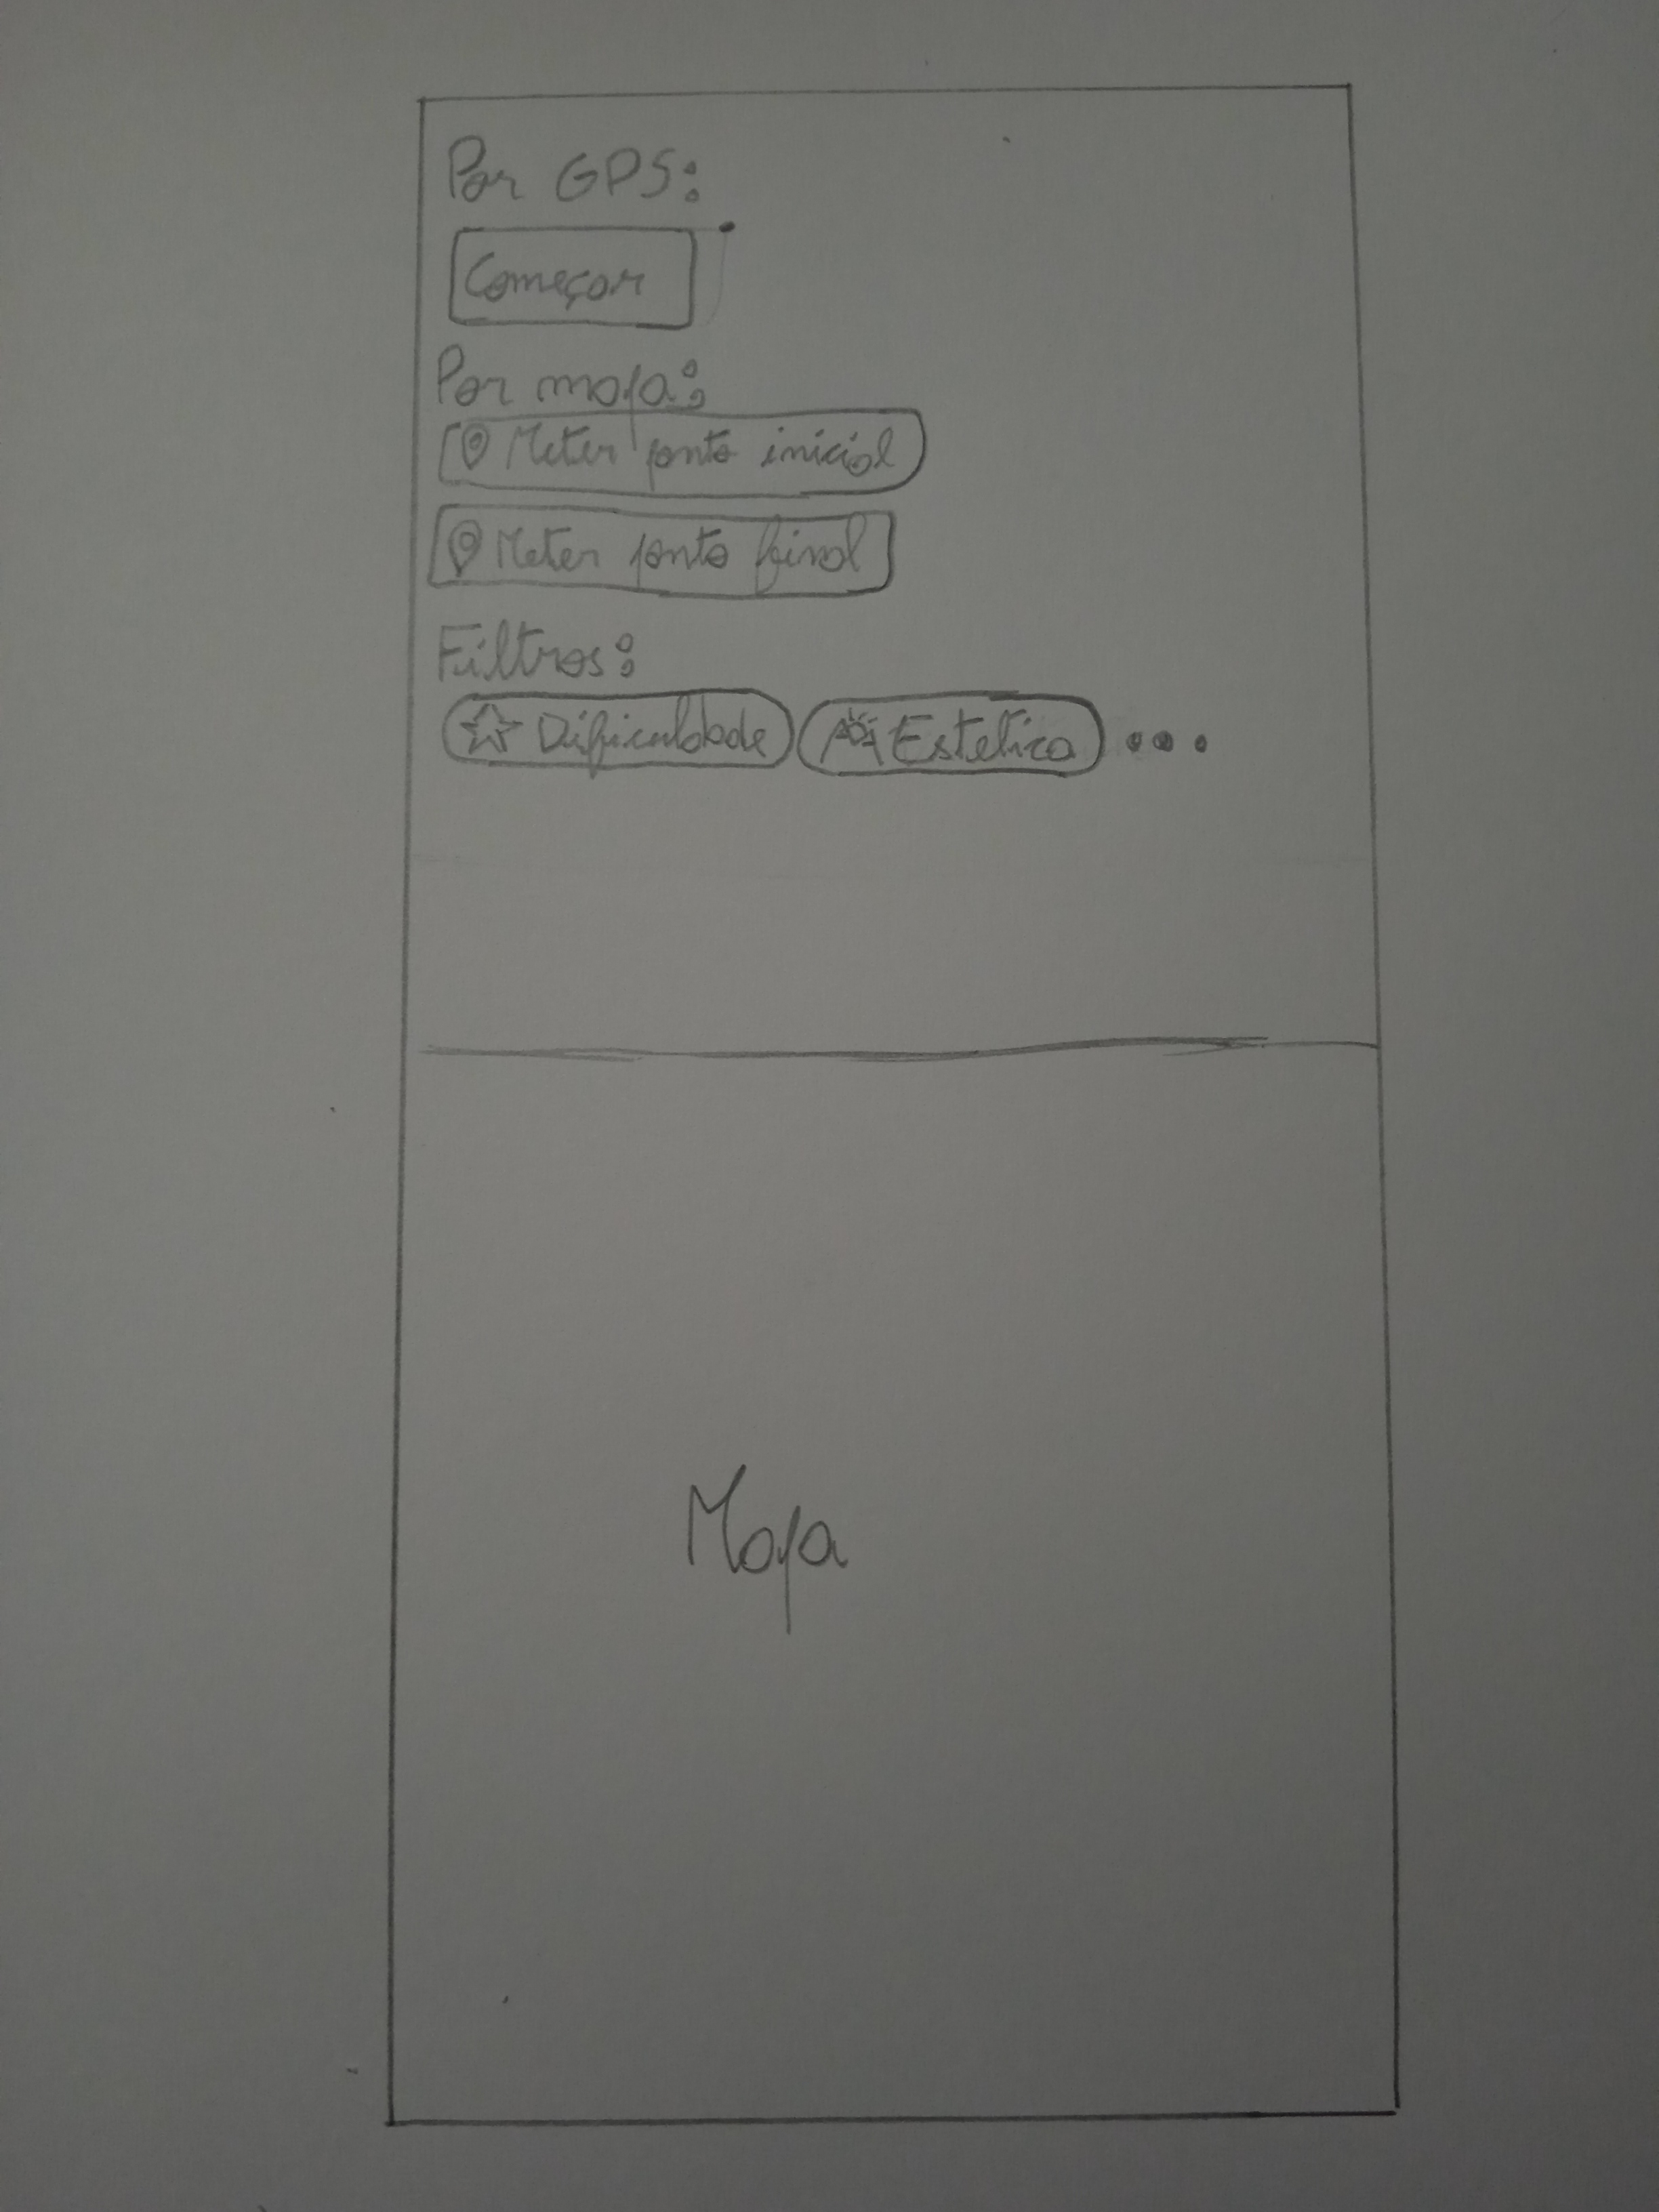 Por GPS:
Começar
Por mapa:
Meter ponto inicial
Meter ponto final
Filtros:
Dificuldade Estetica ...
Mapa